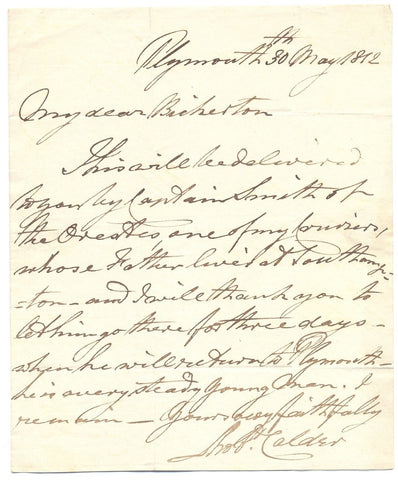 Plymouth 30th May 1812
My dear Bickerton
This will be delivered
to you by Captain Smith of
the Orestes, one of my Cruizers,
whose Father lives at Southamp-
=ton - and I will thank you to
let him go there for three days -
when he will return to Plymouth -
he is a very steady young man. I
remain - yours very faithfully
Calder